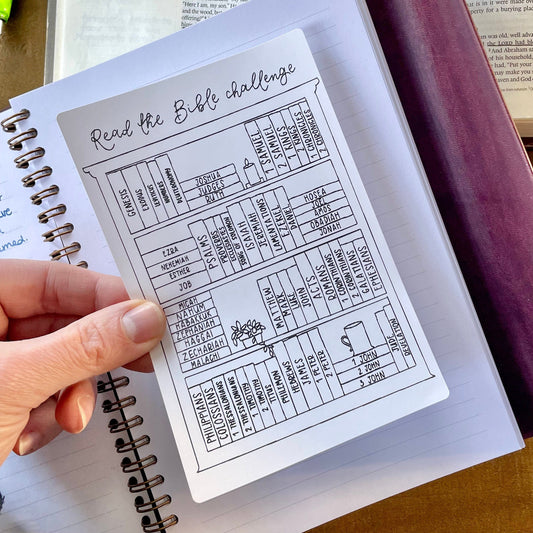 "Here I am, my son."
and the wood, but
for a burying place.
was old, well advanced
the LORD had bl
And Abraham s
of his household
had, "Put your
may make you
Read the Bible challenge
GENESIS
EXODUS
LEVITICUS
NUMBERS
DEUTERONOMY
JOSHUA
JUDGES
RUTH
1 SAMUEL
2 SAMUEL
1 KINGS
2 KINGS
1 CHRONICLES
2 CHRONICLES
EZRA
NEHEMIAH
ESTHER
JOB
PSALMS
PROVERBS
ECCLESIASTES
SONG OF SOLOMON
ISAIAH
JEREMIAH
LAMENTATIONS
EZEKIEL
DANIEL
HOSEA
JOEL
AMOS
OBADIAH
JONAH
MICAH
NAHUM
HABAKKUK
ZEPHANIAH
HAGGAI
ZECHARIAH
MALACHI
MATTHEW
MARK
LUKE
JOHN
ACTS
ROMANS
1 CORINTHIANS
2 CORINTHIANS
GALATIANS
EPHESIANS
PHILIPPIANS
COLOSSIANS
1 THESSALONIANS
2 THESSALONIANS
1 TIMOTHY
2 TIMOTHY
TITUS
PHILEMON
HEBREWS
JAMES
1 PETER
2 PETER
1 JOHN
2 JOHN
3 JOHN
JUDE
REVELATION